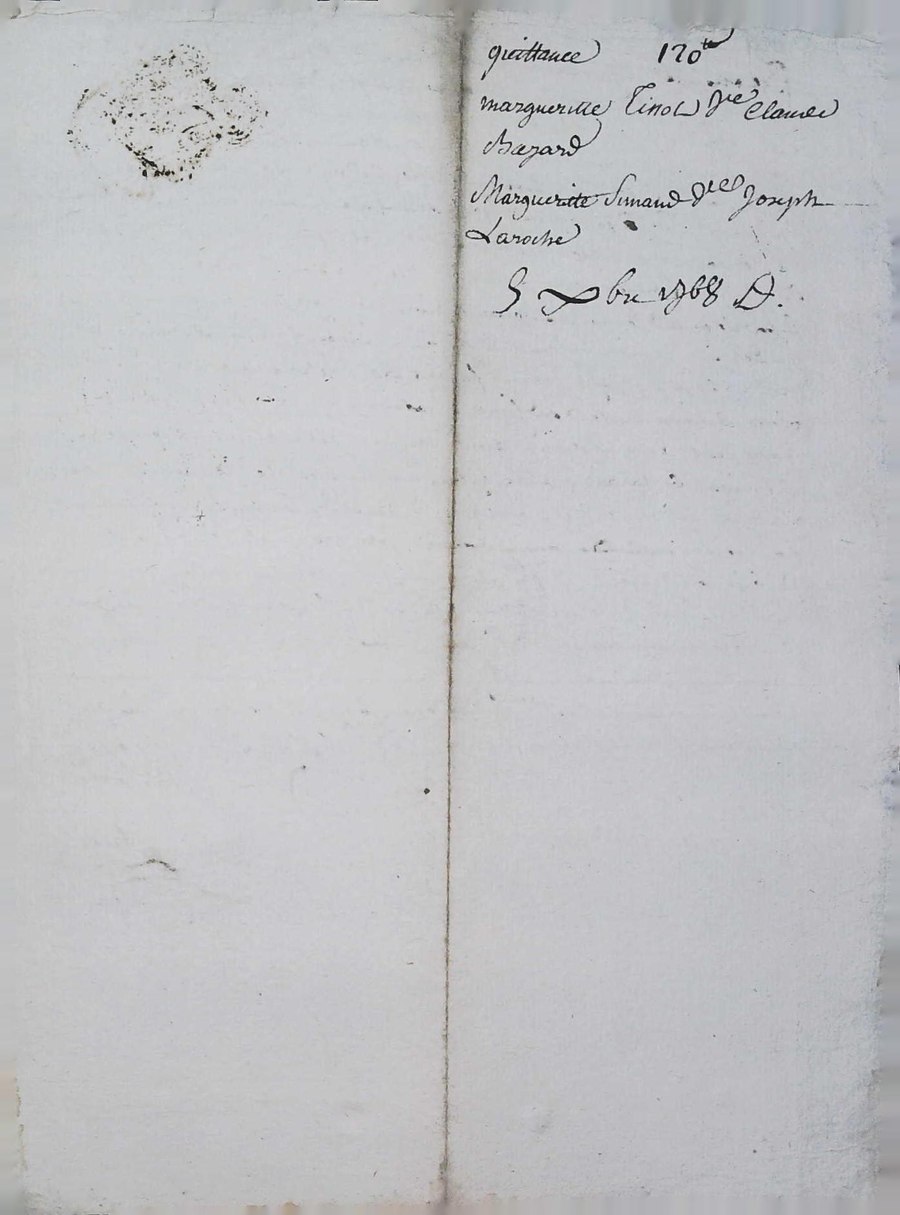 quittance 120tt
margueritte Tinot vve Claude
Bazard
Margueritte Simand vve Joseph
Laroche
5 Xbre 1768 D.